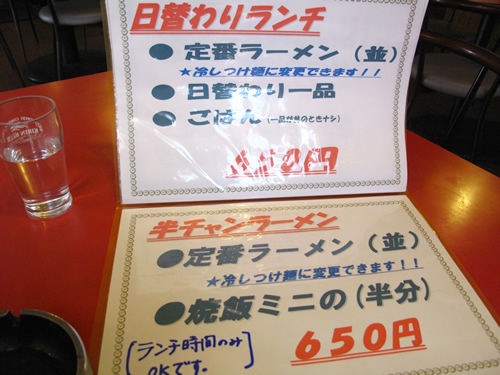 日替わりランチ
● 定番ラーメン（並）
★冷しつけ麺に変更できます！！
● 日替わり一品
● ごはん（一品丼丼のときナシ）
半チャンラーメン
●定番ラーメン（並）
★冷しつけ麺に変更できます！！
●焼飯ミニの（半分）
ランチ時間のみ
OKです。
650円
KIRIN BEER